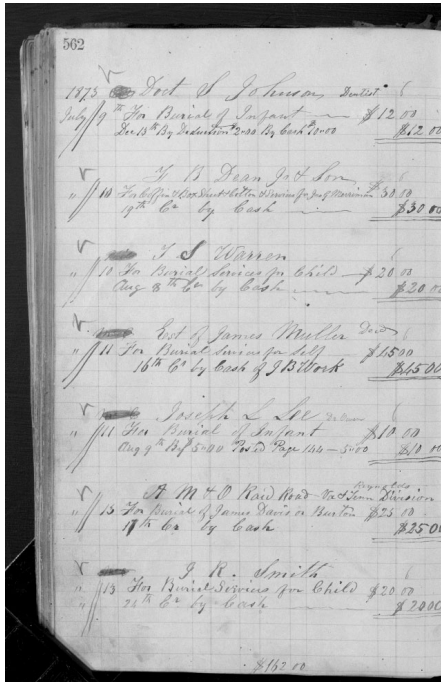 562
1873 Doct S Johnson Dentist
July 9th For Burial of Infant $12.00
Dec 13th By Deduction 2.00 By Cash 10.00 $12.00
F B Dean Jr & Son
" 10 For Coffin & Box Shirt & Cotton & Services for $30.00
19th Cr by Cash $30.00
T S Warren
" 10 For Burial Services for Child $20.00
Aug 8th Cr by Cash $20.00
Est of James Muller Decd
" 11 For Burial Services for Self $45.00
16th Cr by Cash of J B Work $45.00
Joseph L Lee
" 11 For Burial of Infant $10.00
Aug 9th By 5.00 Posted Page 144 5.00 $10.00
A M & O Raid Road Va & Tenn Division
Reynolds
" 13 For Burial of James Davis or Burton $25.00
17th Cr by Cash $25.00
J R. Smith
" 13 For Burial Services for Child $20.00
" 24th Cr by Cash $20.00
$162.00